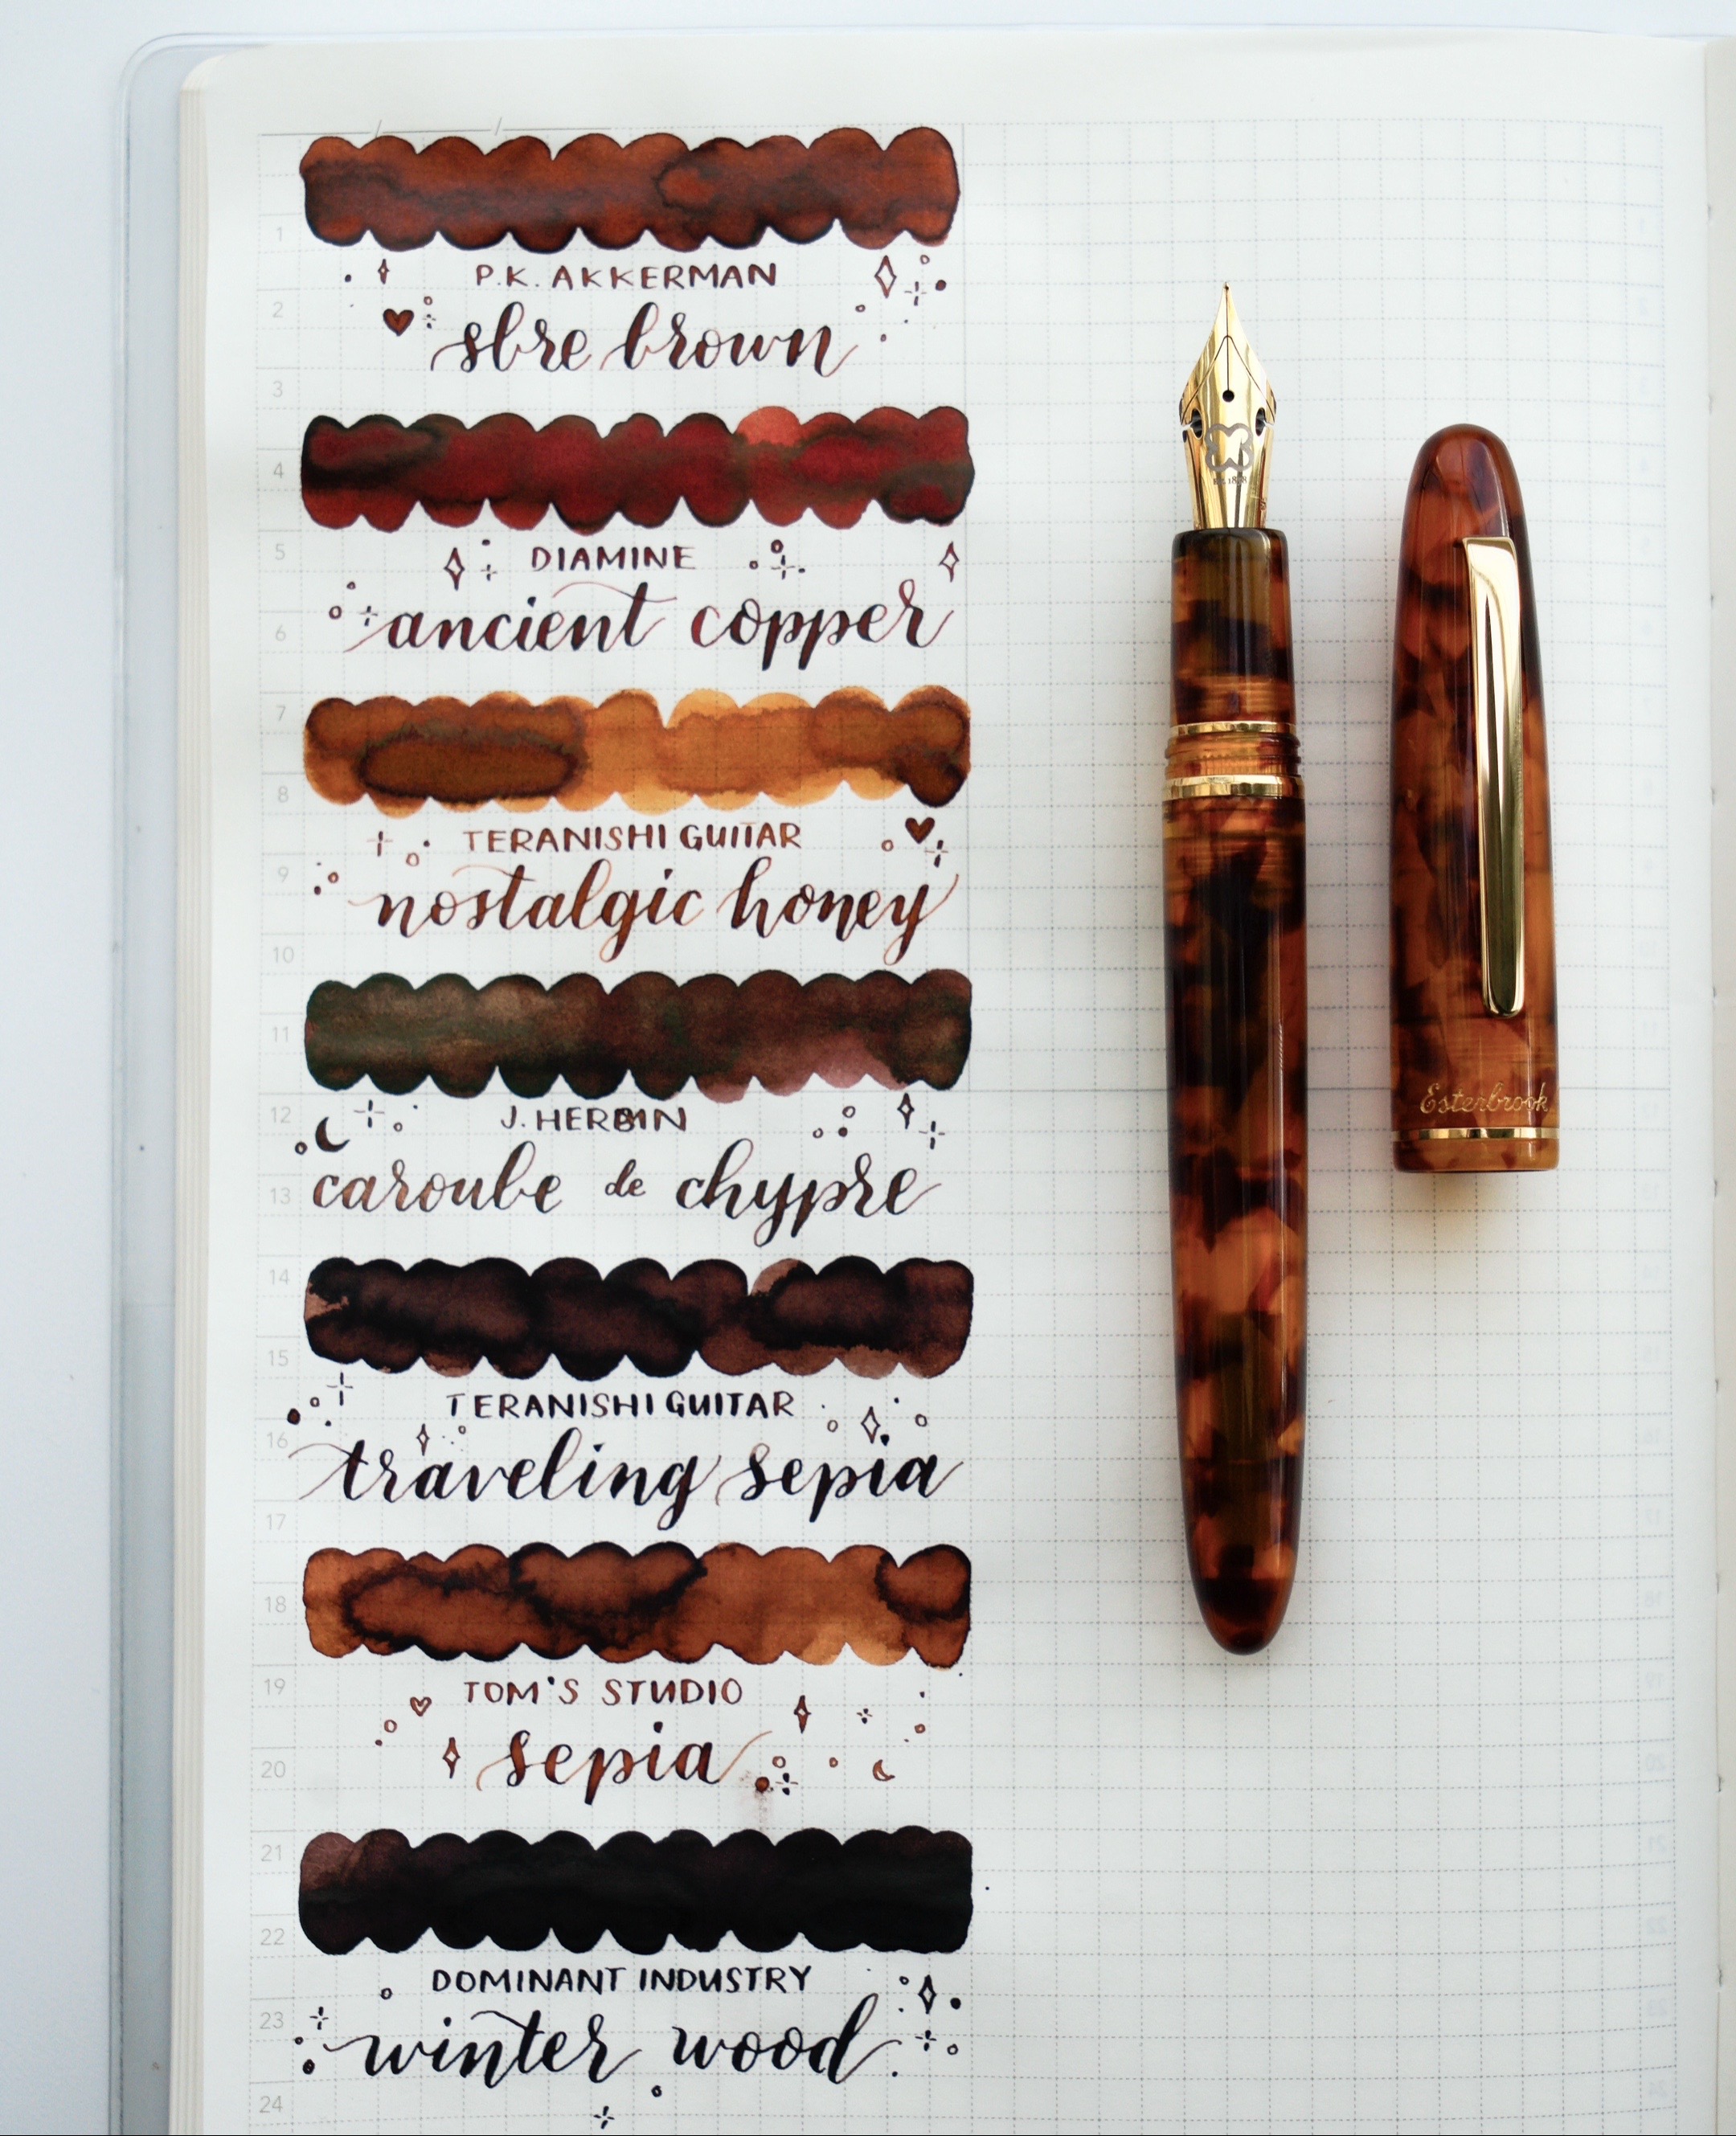 1
P.K. AKKERMAN
2
sbre brown
3
4
5
DIAMINE
6
ancient copper
7
8
TERANISHI GUITAR
9
nostalgic honey
10
11
12
J. HERBIN
13
caroube de chypre
14
15
TERANISHI GUITAR
16
traveling sepia
17
18
19
TOM'S STUDIO
20
sepia
21
22
DOMINANT INDUSTRY
23
winter wood
24
Esterbrook